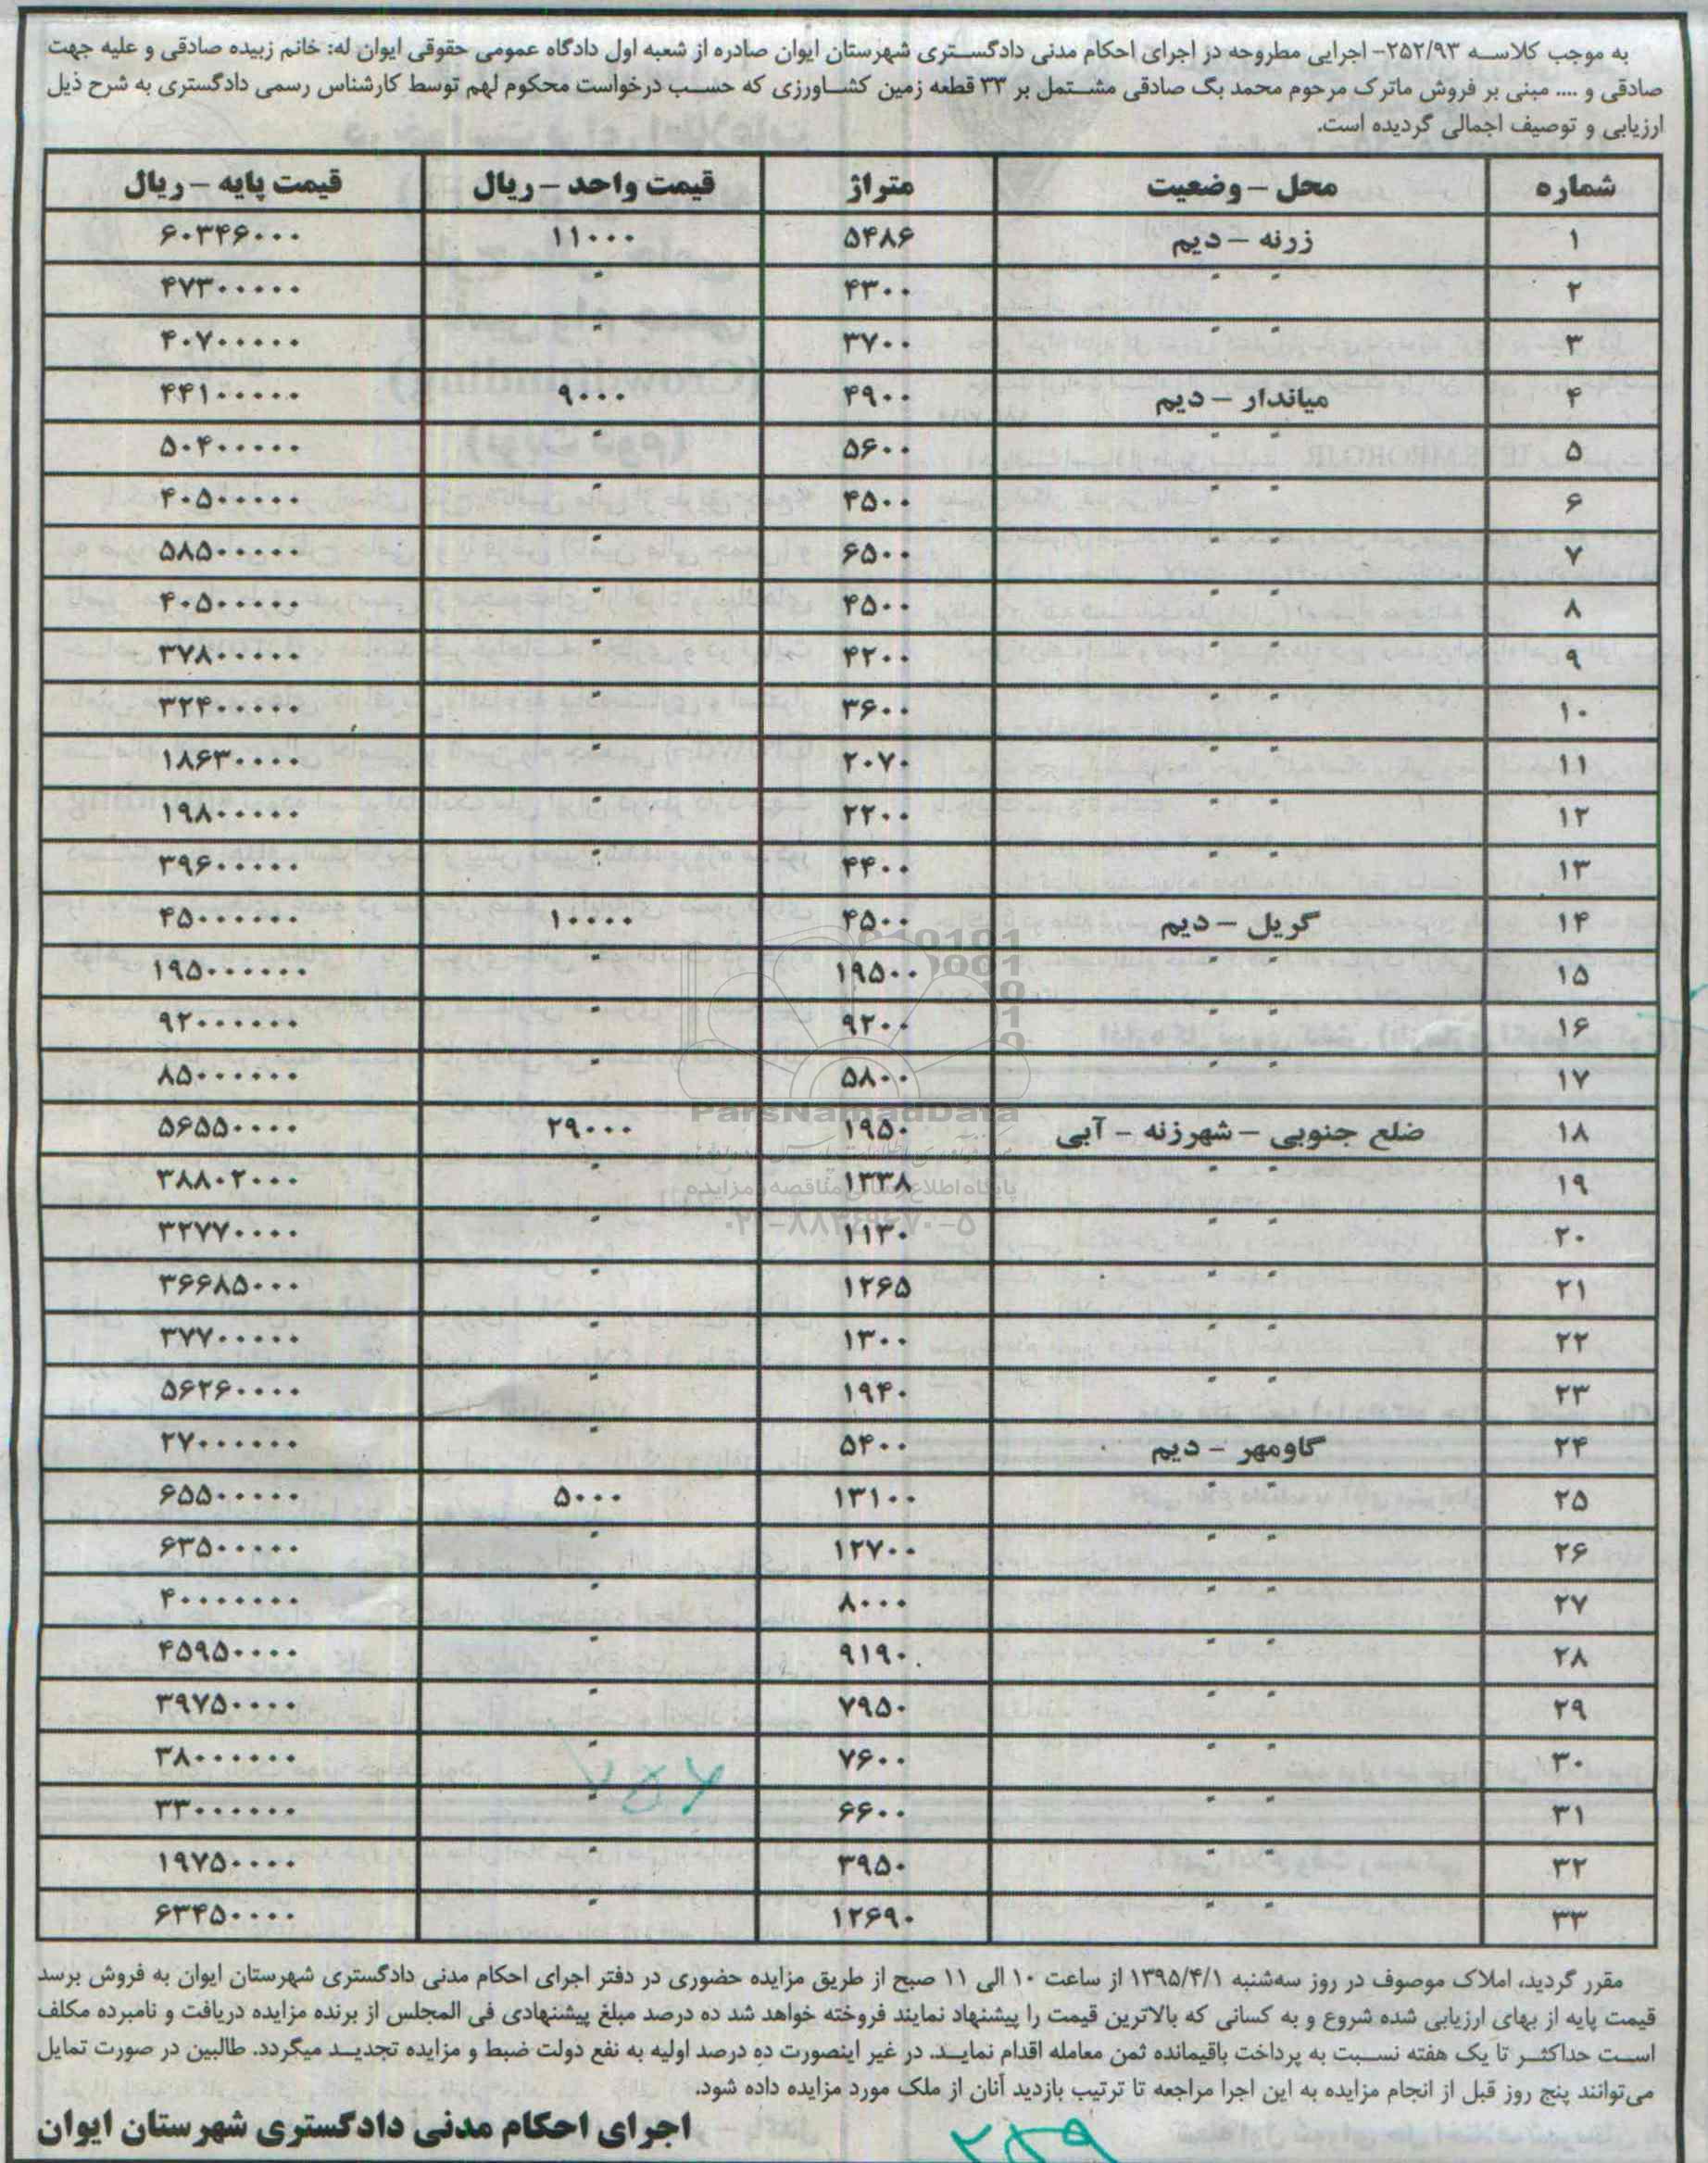 به موجب کلاسه ۲۵۲/۹۳- اجرایی مطروحه در اجرای احکام مدنی دادگستری شهرستان ایوان صادره از شعبه اول دادگاه عمومی حقوقی ایوان له: خانم زبیده صادقی و علیه جهت
صادقی و .... مبنی بر فروش ماترک مرحوم محمد بگ صادقی مشتمل بر ۳۳ قطعه زمین کشاورزی که حسب درخواست محکوم لهم توسط کارشناس رسمی دادگستری به شرح ذیل
ارزیابی و توصیف اجمالی گردیده است.
شماره محل - وضعیت متراژ قیمت واحد - ریال قیمت پایه - ریال
۱ زرنه - دیم ۵۴۸۶ ۱۱۰۰۰ ۶۰۳۴۶۰۰۰
۲ " " ۴۳۰۰ " ۴۷۳۰۰۰۰۰
۳ " " ۳۷۰۰ " ۴۰۷۰۰۰۰۰
۴ میاندار - دیم ۴۹۰۰ ۹۰۰۰ ۴۴۱۰۰۰۰۰
۵ " " ۵۶۰۰ " ۵۰۴۰۰۰۰۰
۶ " " ۴۵۰۰ " ۴۰۵۰۰۰۰۰
۷ " " ۶۵۰۰ " ۵۸۵۰۰۰۰۰
۸ " " ۴۵۰۰ " ۴۰۵۰۰۰۰۰
۹ " " ۴۲۰۰ " ۳۷۸۰۰۰۰۰
۱۰ " " ۳۶۰۰ " ۳۲۴۰۰۰۰۰
۱۱ " " ۲۰۷۰ " ۱۸۶۳۰۰۰۰
۱۲ " " ۲۲۰۰ " ۱۹۸۰۰۰۰۰
۱۳ " " ۴۴۰۰ " ۳۹۶۰۰۰۰۰
۱۴ گریل - دیم ۴۵۰۰ ۱۰۰۰۰ ۴۵۰۰۰۰۰۰
۱۵ " " ۱۹۵۰۰ " ۱۹۵۰۰۰۰۰۰
۱۶ " " ۹۲۰۰ " ۹۲۰۰۰۰۰۰
۱۷ " " ۵۸۰۰ " ۸۵۰۰۰۰۰۰
۱۸ ضلع جنوبی - شهرزنه - آبی ۱۹۵۰ ۲۹۰۰۰ ۵۶۵۵۰۰۰۰
۱۹ " " ۱۳۳۸ " ۳۸۸۰۲۰۰۰
۲۰ " " ۱۱۳۰ " ۳۲۷۷۰۰۰۰
۲۱ " " ۱۲۶۵ " ۳۶۶۸۵۰۰۰
۲۲ " " ۱۳۰۰ " ۳۷۷۰۰۰۰۰
۲۳ " " ۱۹۴۰ " ۵۶۲۶۰۰۰۰
۲۴ گاومهر - دیم ۵۴۰۰ " ۲۷۰۰۰۰۰۰
۲۵ " " ۱۳۱۰۰ ۵۰۰۰ ۶۵۵۰۰۰۰۰
۲۶ " " ۱۲۷۰۰ " ۶۳۵۰۰۰۰۰
۲۷ " " ۸۰۰۰ " ۴۰۰۰۰۰۰۰
۲۸ " " ۹۱۹۰ " ۴۵۹۵۰۰۰۰
۲۹ " " ۷۹۵۰ " ۳۹۷۵۰۰۰۰
۳۰ " " ۷۶۰۰ " ۳۸۰۰۰۰۰۰
۳۱ " " ۶۶۰۰ " ۳۳۰۰۰۰۰۰
۳۲ " " ۳۹۵۰ " ۱۹۷۵۰۰۰۰
۳۳ " " ۱۲۶۹۰ " ۶۳۴۵۰۰۰۰
ParsNamadData
پایگاه اطلاع رسانی مناقصه مزایده
مقرر گردید، املاک موصوف در روز سه‌شنبه ۱۳۹۵/۴/۱ از ساعت ۱۰ الی ۱۱ صبح از طریق مزایده حضوری در دفتر اجرای احکام مدنی دادگستری شهرستان ایوان به فروش برسد
قیمت پایه از بهای ارزیابی شده شروع و به کسانی که بالاترین قیمت را پیشنهاد نمایند فروخته خواهد شد ده درصد مبلغ پیشنهادی فی المجلس از برنده مزایده دریافت و نامبرده مکلف
است حداکثر تا یک هفته نسبت به پرداخت باقیمانده ثمن معامله اقدام نماید. در غیر اینصورت ده درصد اولیه به نفع دولت ضبط و مزایده تجدید میگردد. طالبین در صورت تمایل
می‌توانند پنج روز قبل از انجام مزایده به این اجرا مراجعه تا ترتیب بازدید آنان از ملک مورد مزایده داده شود.
اجرای احکام مدنی دادگستری شهرستان ایوان